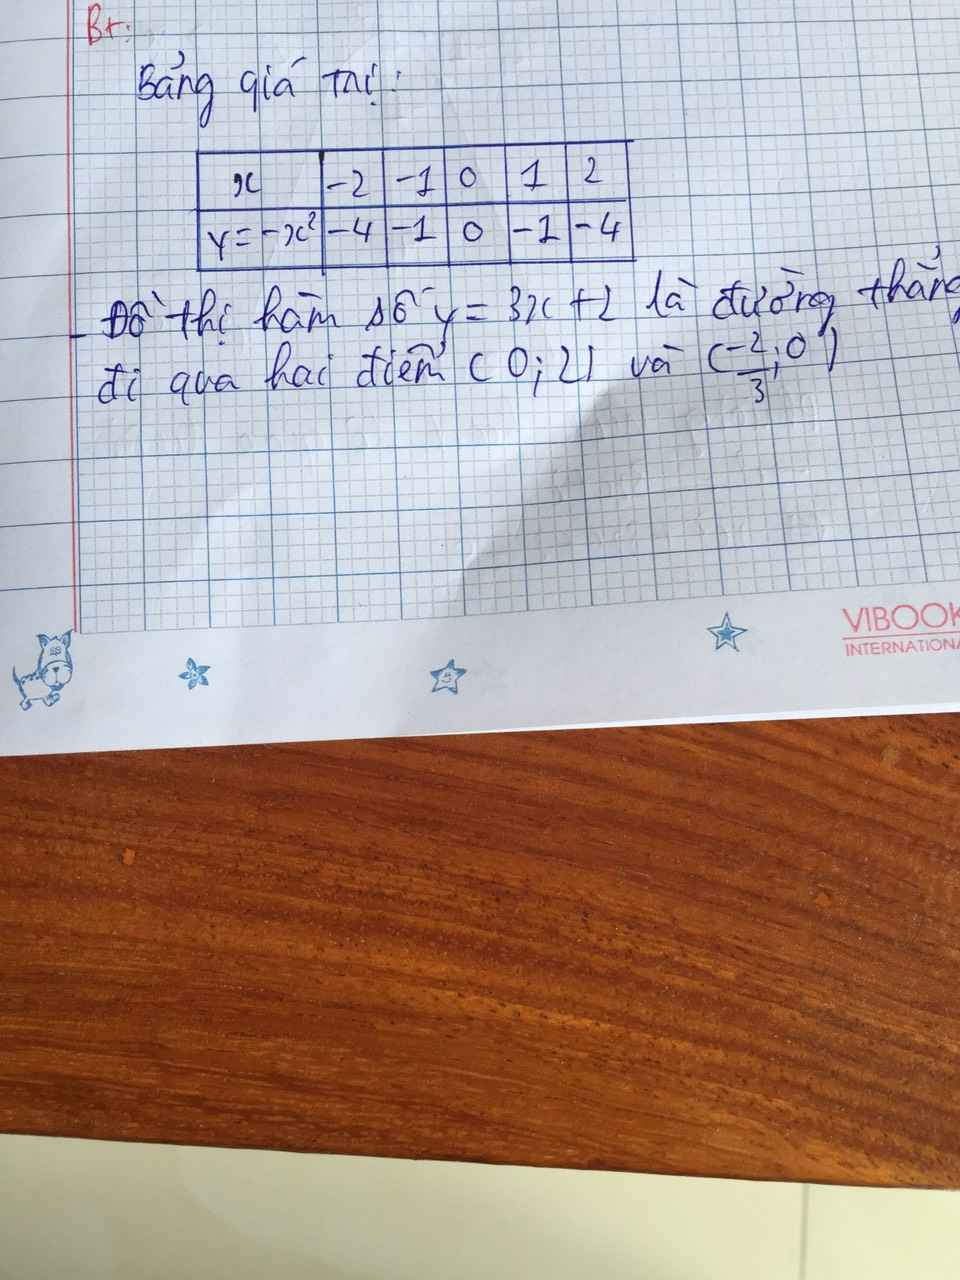 Bt:
Bảng giá trị:
x -2 -1 0 1 2
y = -x² -4 -1 0 -1 -4
- Đồ thị hàm số y = 3x + 2 là đường thẳng
đi qua hai điểm (0; 2) và (-2/3; 0)
VIBOOK
INTERNATIONA